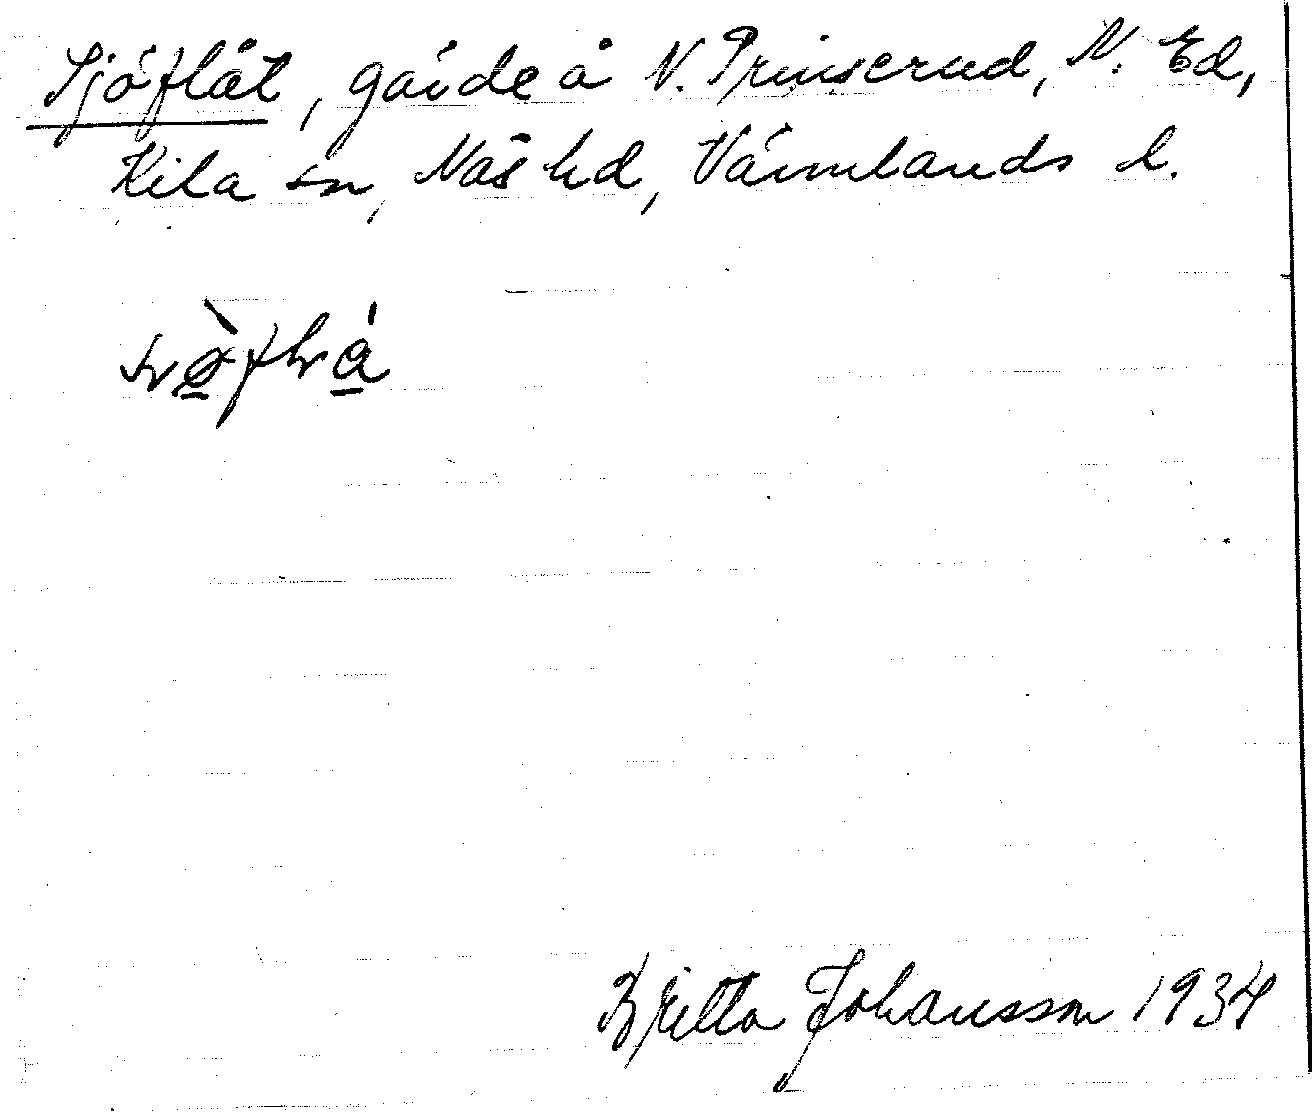 Sjöflåt, gärde å N. Prinserud, N. Ed,
Kila sn, Näs hd, Värmlands l.
Britta Johansson 1934